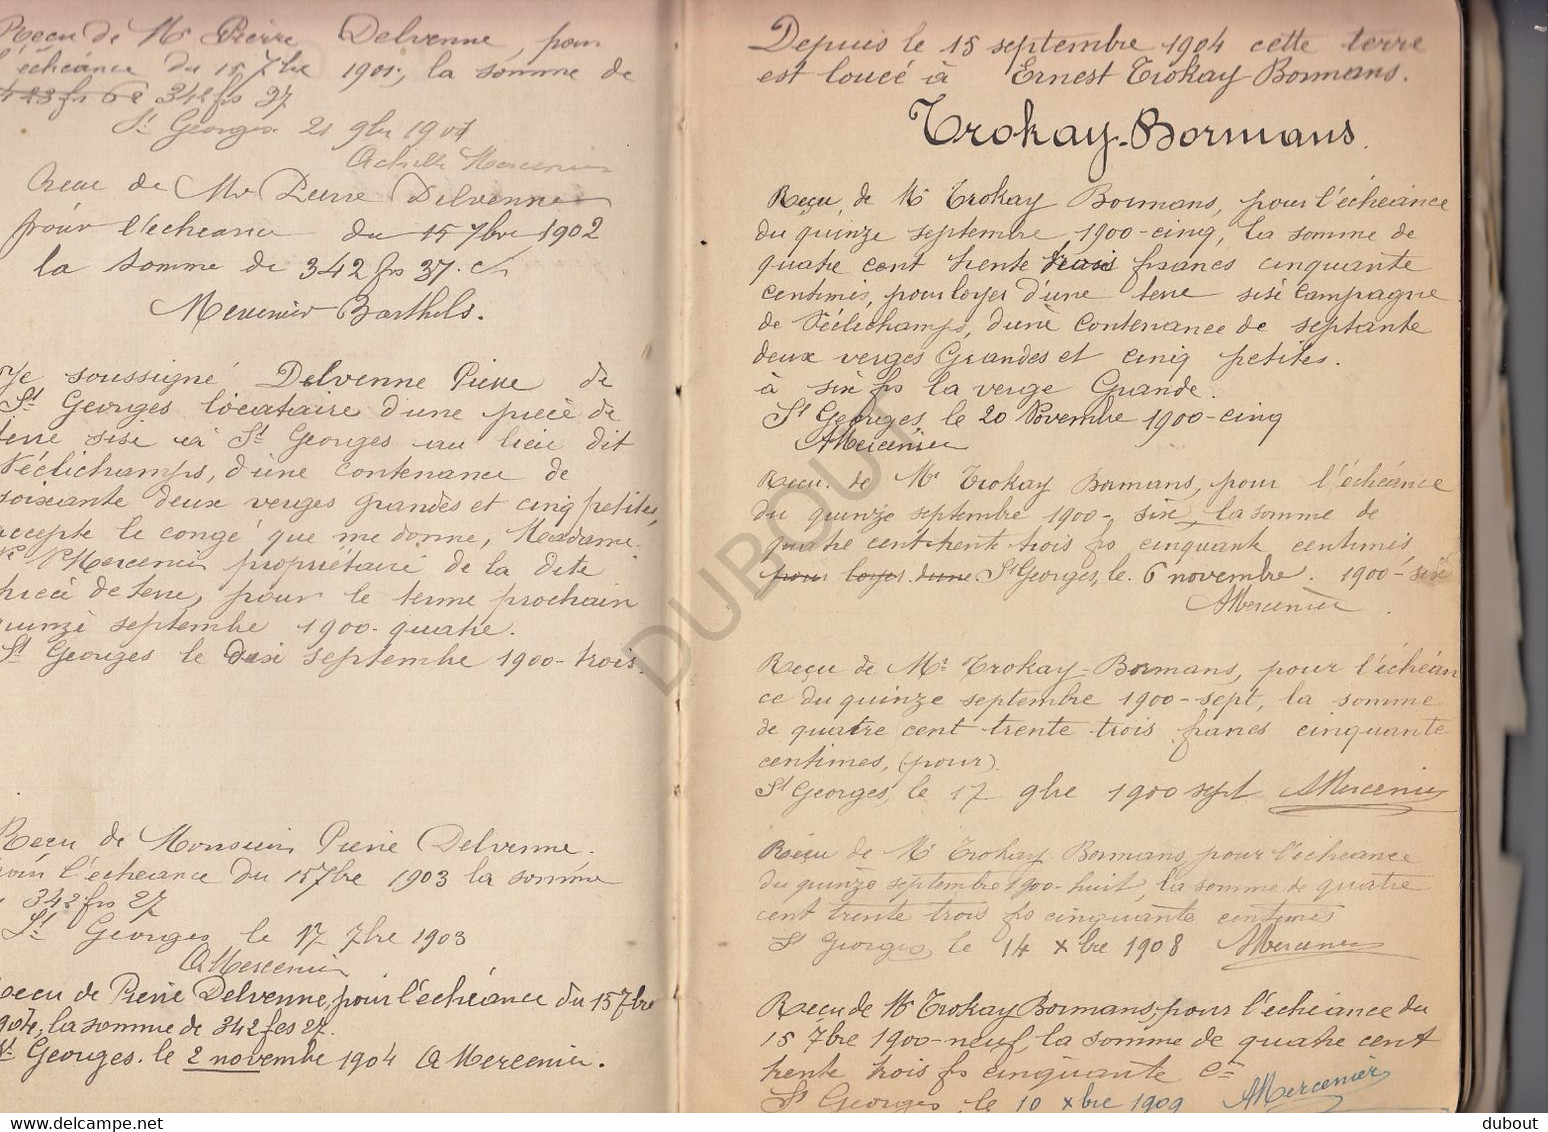 Reçu de Mr Pierre Delvenne, pour
l'échéance du 15 7bre 1901, la somme de
423 frs 62 342 frs 37
St Georges 21 9bre 1901
Achille Mercenier
Reçu de Mr Pierre Delvenne
pour l'échéance du 15 7bre 1902
la somme de 342 frs 37 c
Mercenier Barthels.
Je soussigné Delvenne Pierre de
St Georges locataire d'une pièce de
terre sise à St Georges au lieu dit
Véélichamps, d'une contenance de
soixante deux verges grandes et cinq petites,
accepte le congé que me donne, Madame
Ve Mercenier propriétaire de la dite
pièce de terre, pour le terme prochain
quinze septembre 1900-quatre.
St Georges le septembre 1900-trois.
Reçu de Monsieur Pierre Delvenne.
pour l'échéance du 15 7bre 1903 la somme
342 frs 27
St Georges le 17 7bre 1903
A Mercenier
Reçu de Pierre Delvenne, pour l'échéance du 15 7bre
1904, la somme de 342 fcs 27.
St Georges. le 2 novembre 1904 A Mercenier.
Depuis le 15 septembre 1904 cette terre
est louée à Ernest Trokay-Bormans.
Trokay-Bormans.
Reçu de Mr Trokay Bormans, pour l'échéance
du quinze septembre 1900-cinq, la somme de
quatre cent trente trois francs cinquante
centimes, pour loyer d'une terre sise campagne
de Véélichamps, d'une contenance de septante
deux verges Grandes et cinq petites.
à six frs la verge Grande.
St Georges le 20 Novembre 1900-cinq
A Mercenier
Reçu de Mr Trokay Bormans, pour l'échéance
du quinze septembre 1900-six, la somme de
quatre cent trente trois frs cinquante centimes
pour loyer d'une St Georges, le 6 novembre. 1900-six
A Mercenier.
Reçu de Mr Trokay-Bormans, pour l'échéan
ce du quinze septembre 1900-sept, la somme
de quatre cent trente trois francs cinquante
centimes, (pour)
St Georges, le 17 9bre 1900 sept A Mercenier
Reçu de Mr Trokay Bormans, pour l'échéance
du quinze septembre 1900-huit, la somme de quatre
cent trente trois frs cinquante centimes
St Georges, le 14 xbre 1908 A Mercenier
Reçu de Mr Trokay Bormans, pour l'échéance du
15 7bre 1900-neuf, la somme de quatre cent
trente trois frs cinquante c
St Georges, le 10 xbre 1909 A Mercenier
DUBOUT
www.delcampe.net
dubout